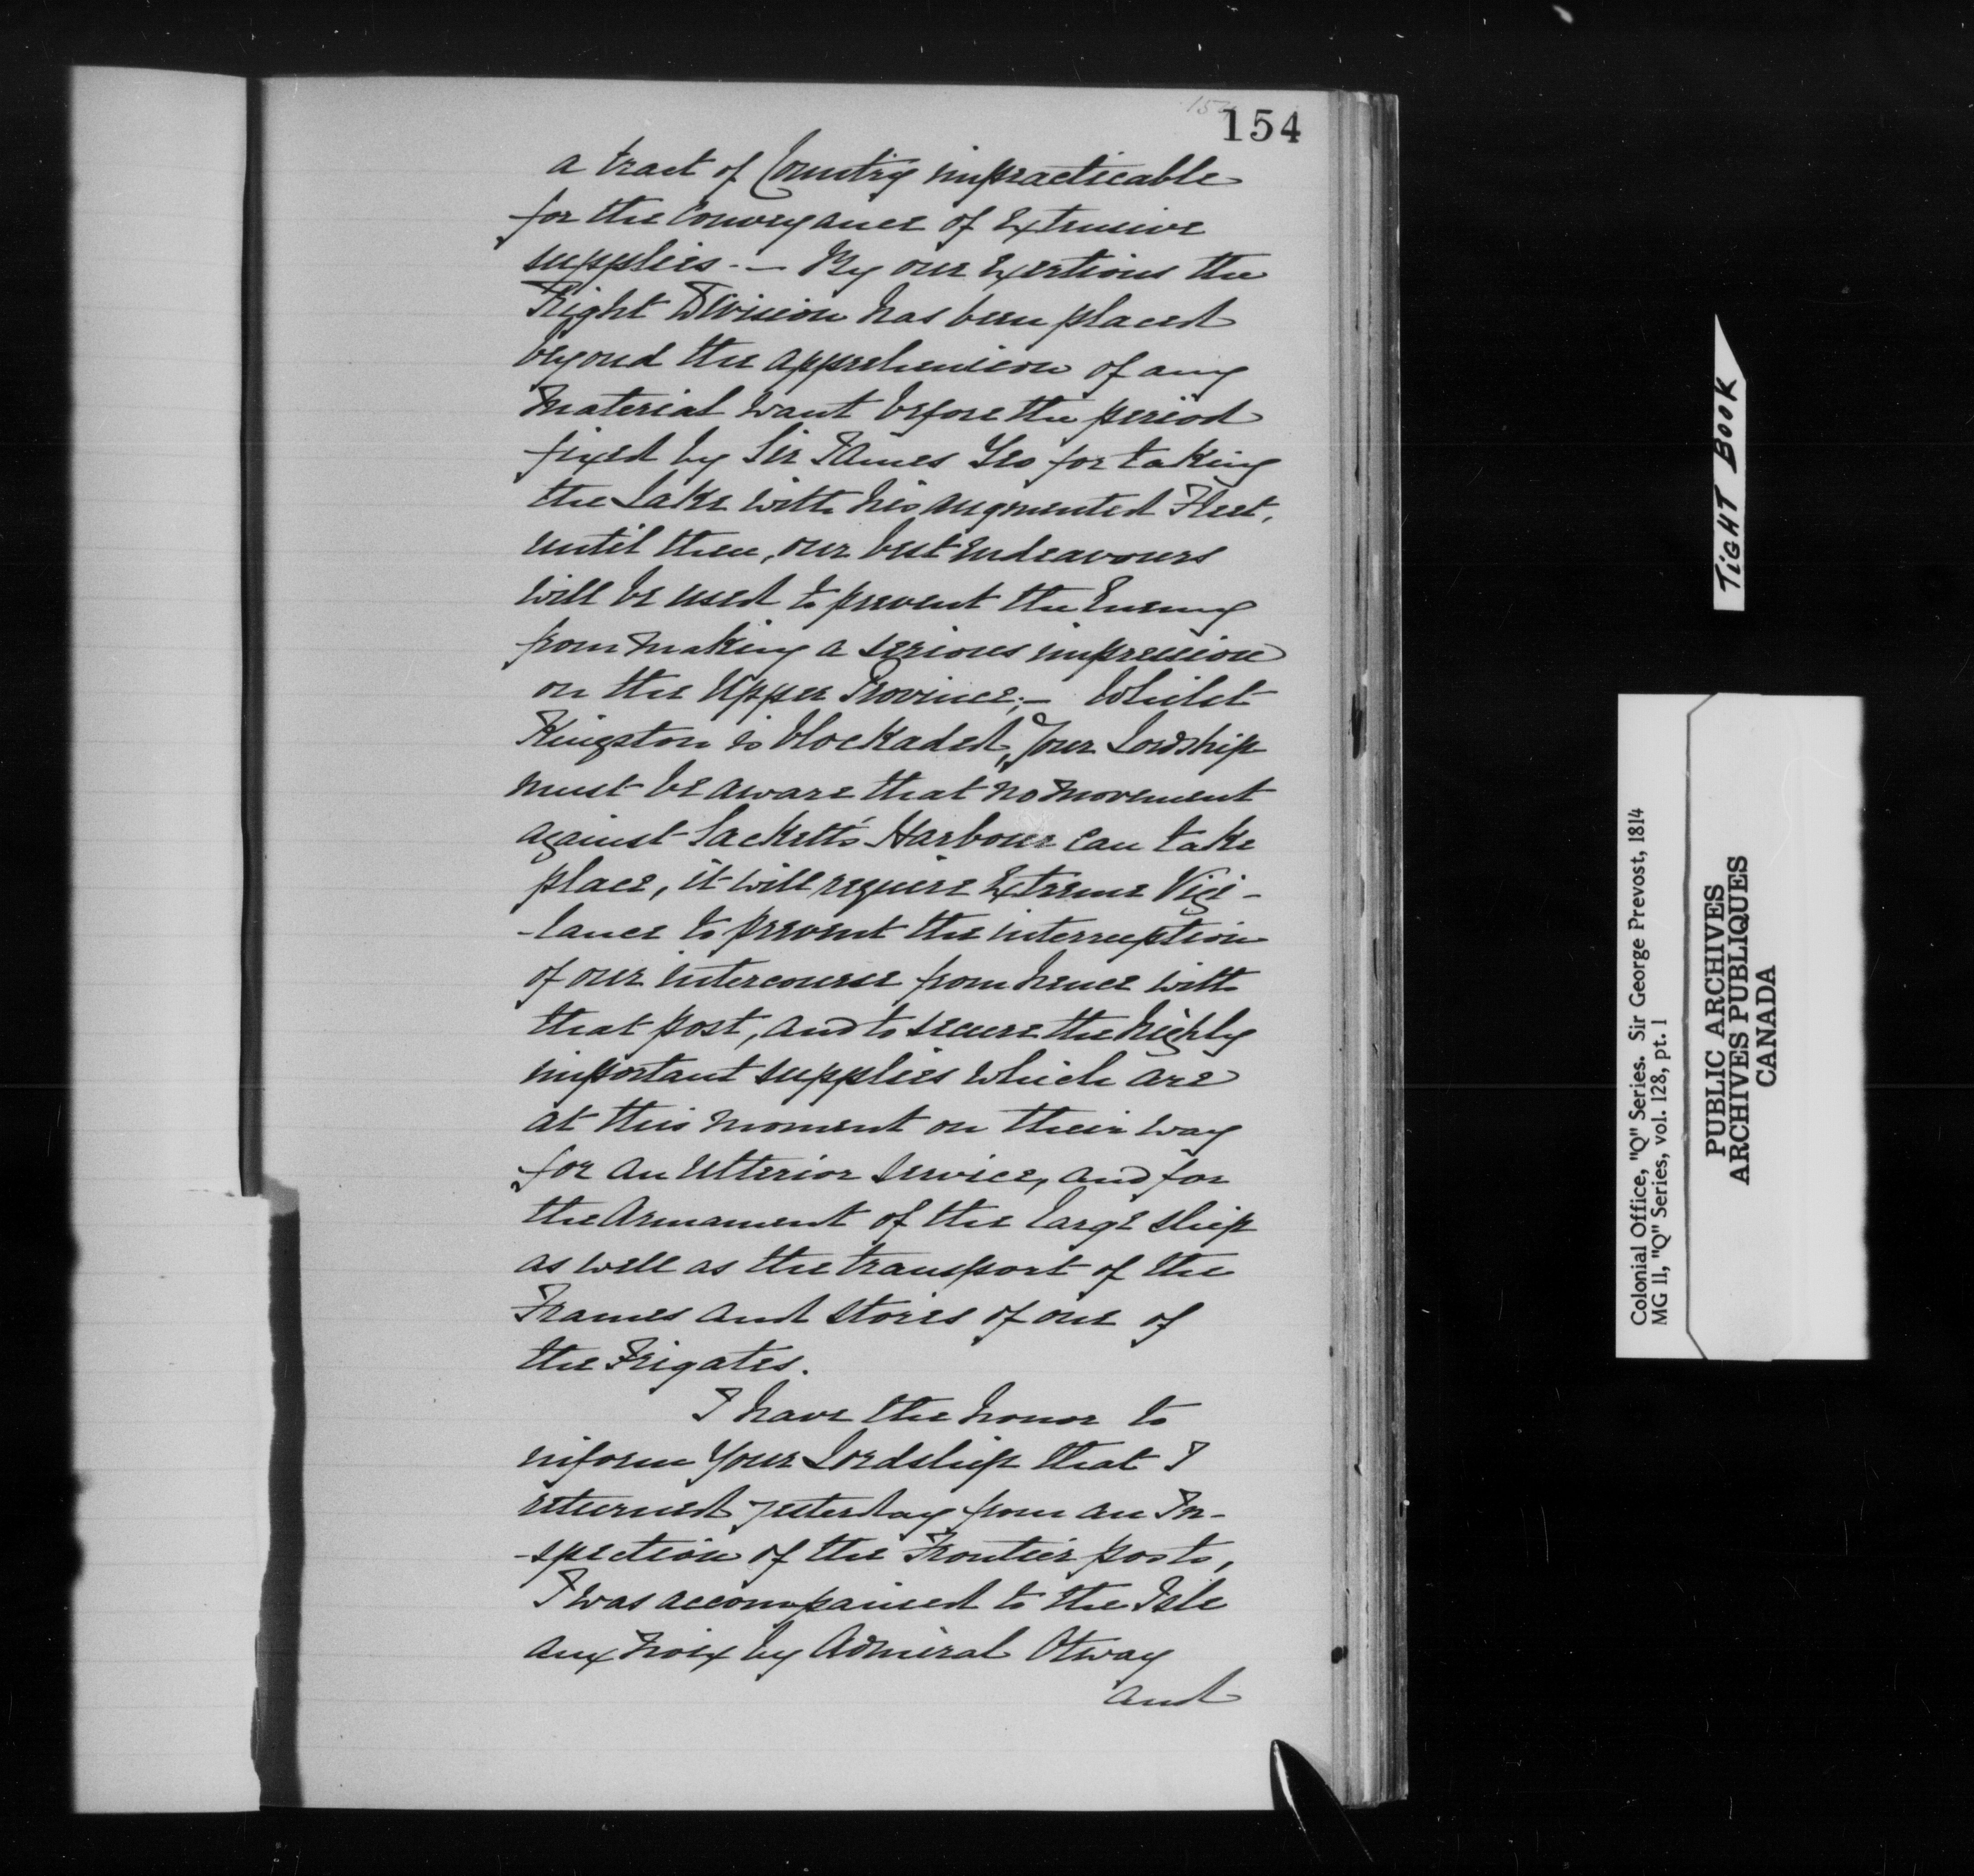 154
a tract of Country impracticable
for the Conveyance of Extensive
supplies. — By our Exertions the
Right Division has been placed
beyond the apprehension of any
material want before the period
fixed by Sir James Yeo for taking
the Lake with his augmented Fleet,
until then, our best Endeavours
will be used to prevent the Enemy
from making a serious impression
on the Upper Province; — Whilst
Kingston is blockaded, Your Lordship
must be aware that no movement
against Sackett's Harbour can take
place, it will require Extreme Vigi-
-lance to prevent the interruption
of our intercourse from hence with
that post, and to secure the highly
important supplies which are
at this moment on their way
for an Ulterior service, and for
the Armament of the large ship
as well as the transport of the
Frames and stores of one of
the Frigates.
I have the honor to
inform Your Lordship that I
returned yesterday from an In-
-spection of the Frontier posts,
I was accompanied to the Isle
aux Noix by Admiral Otway
and
TIGHT BOOK
Colonial Office, "Q" Series. Sir George Prevost, 1814
MG 11, "Q" Series, vol. 128, pt. 1
PUBLIC ARCHIVES
ARCHIVES PUBLIQUES
CANADA